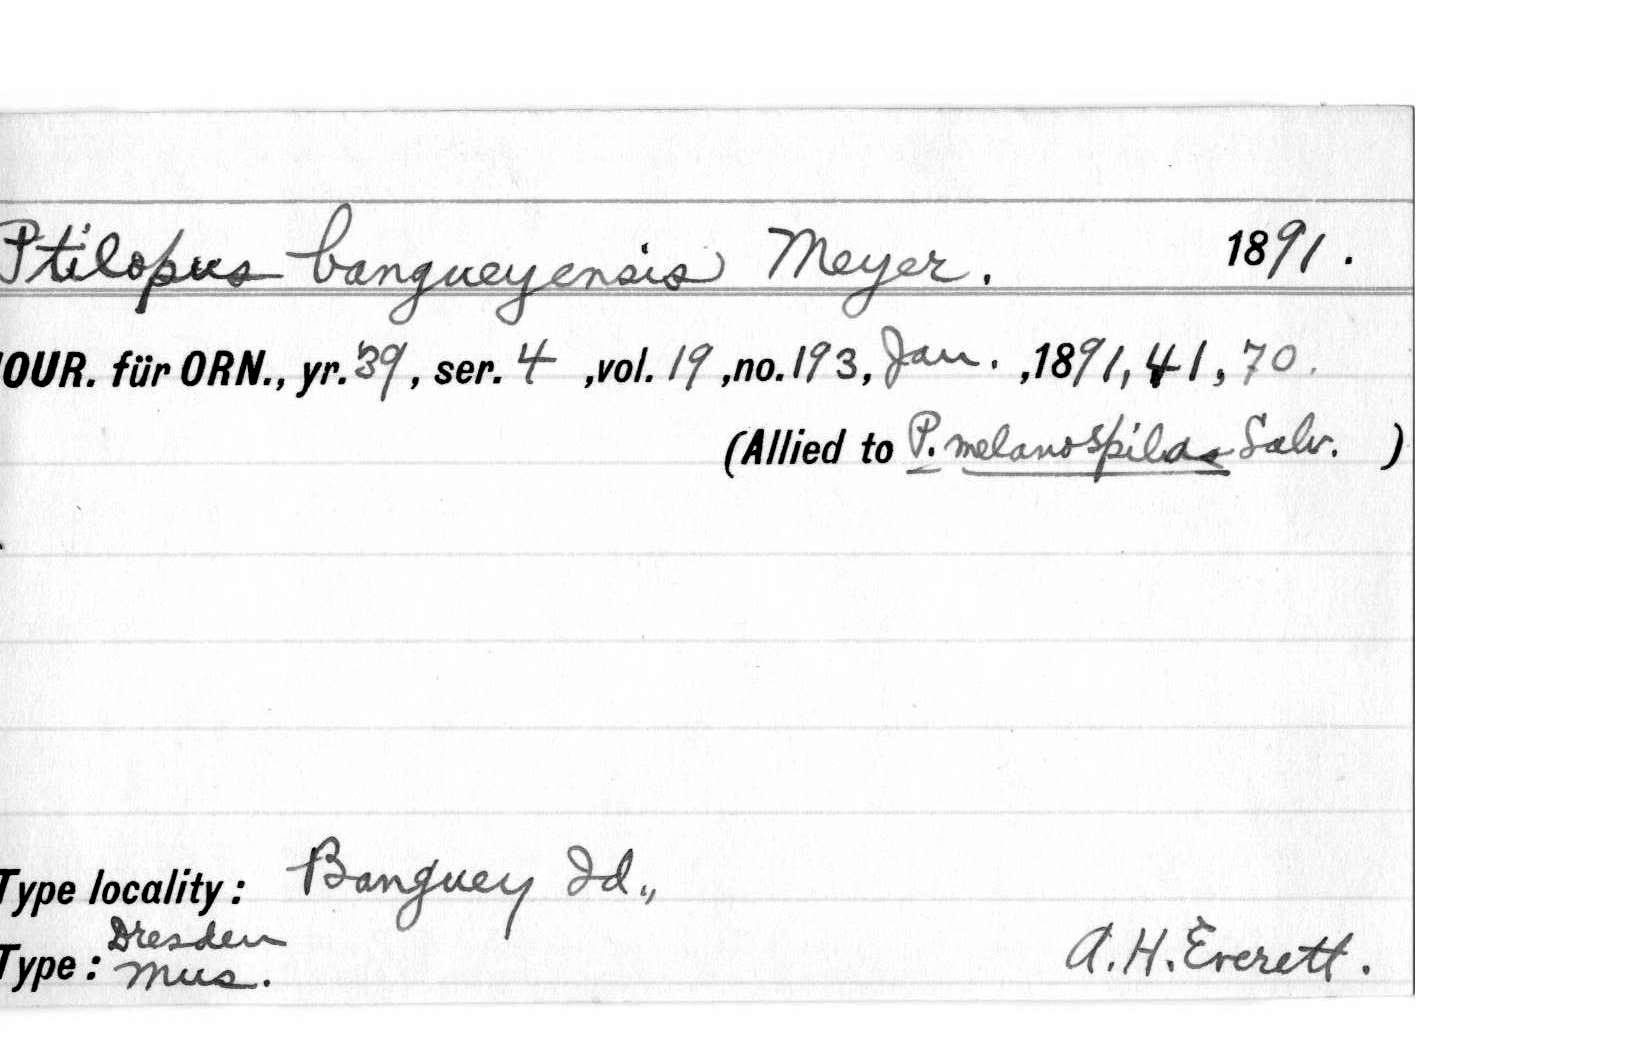 Ptilopus bangueyensis Meyer. 1891.
JOUR. für ORN., yr. 39, ser. 4 ,vol. 19 ,no. 193, Jan. ,1891, 41, 70.
(Allied to P. melanospila Salv. )
Type locality: Banguey Id.,
Type: Dresden Mus. A. H. Everett.